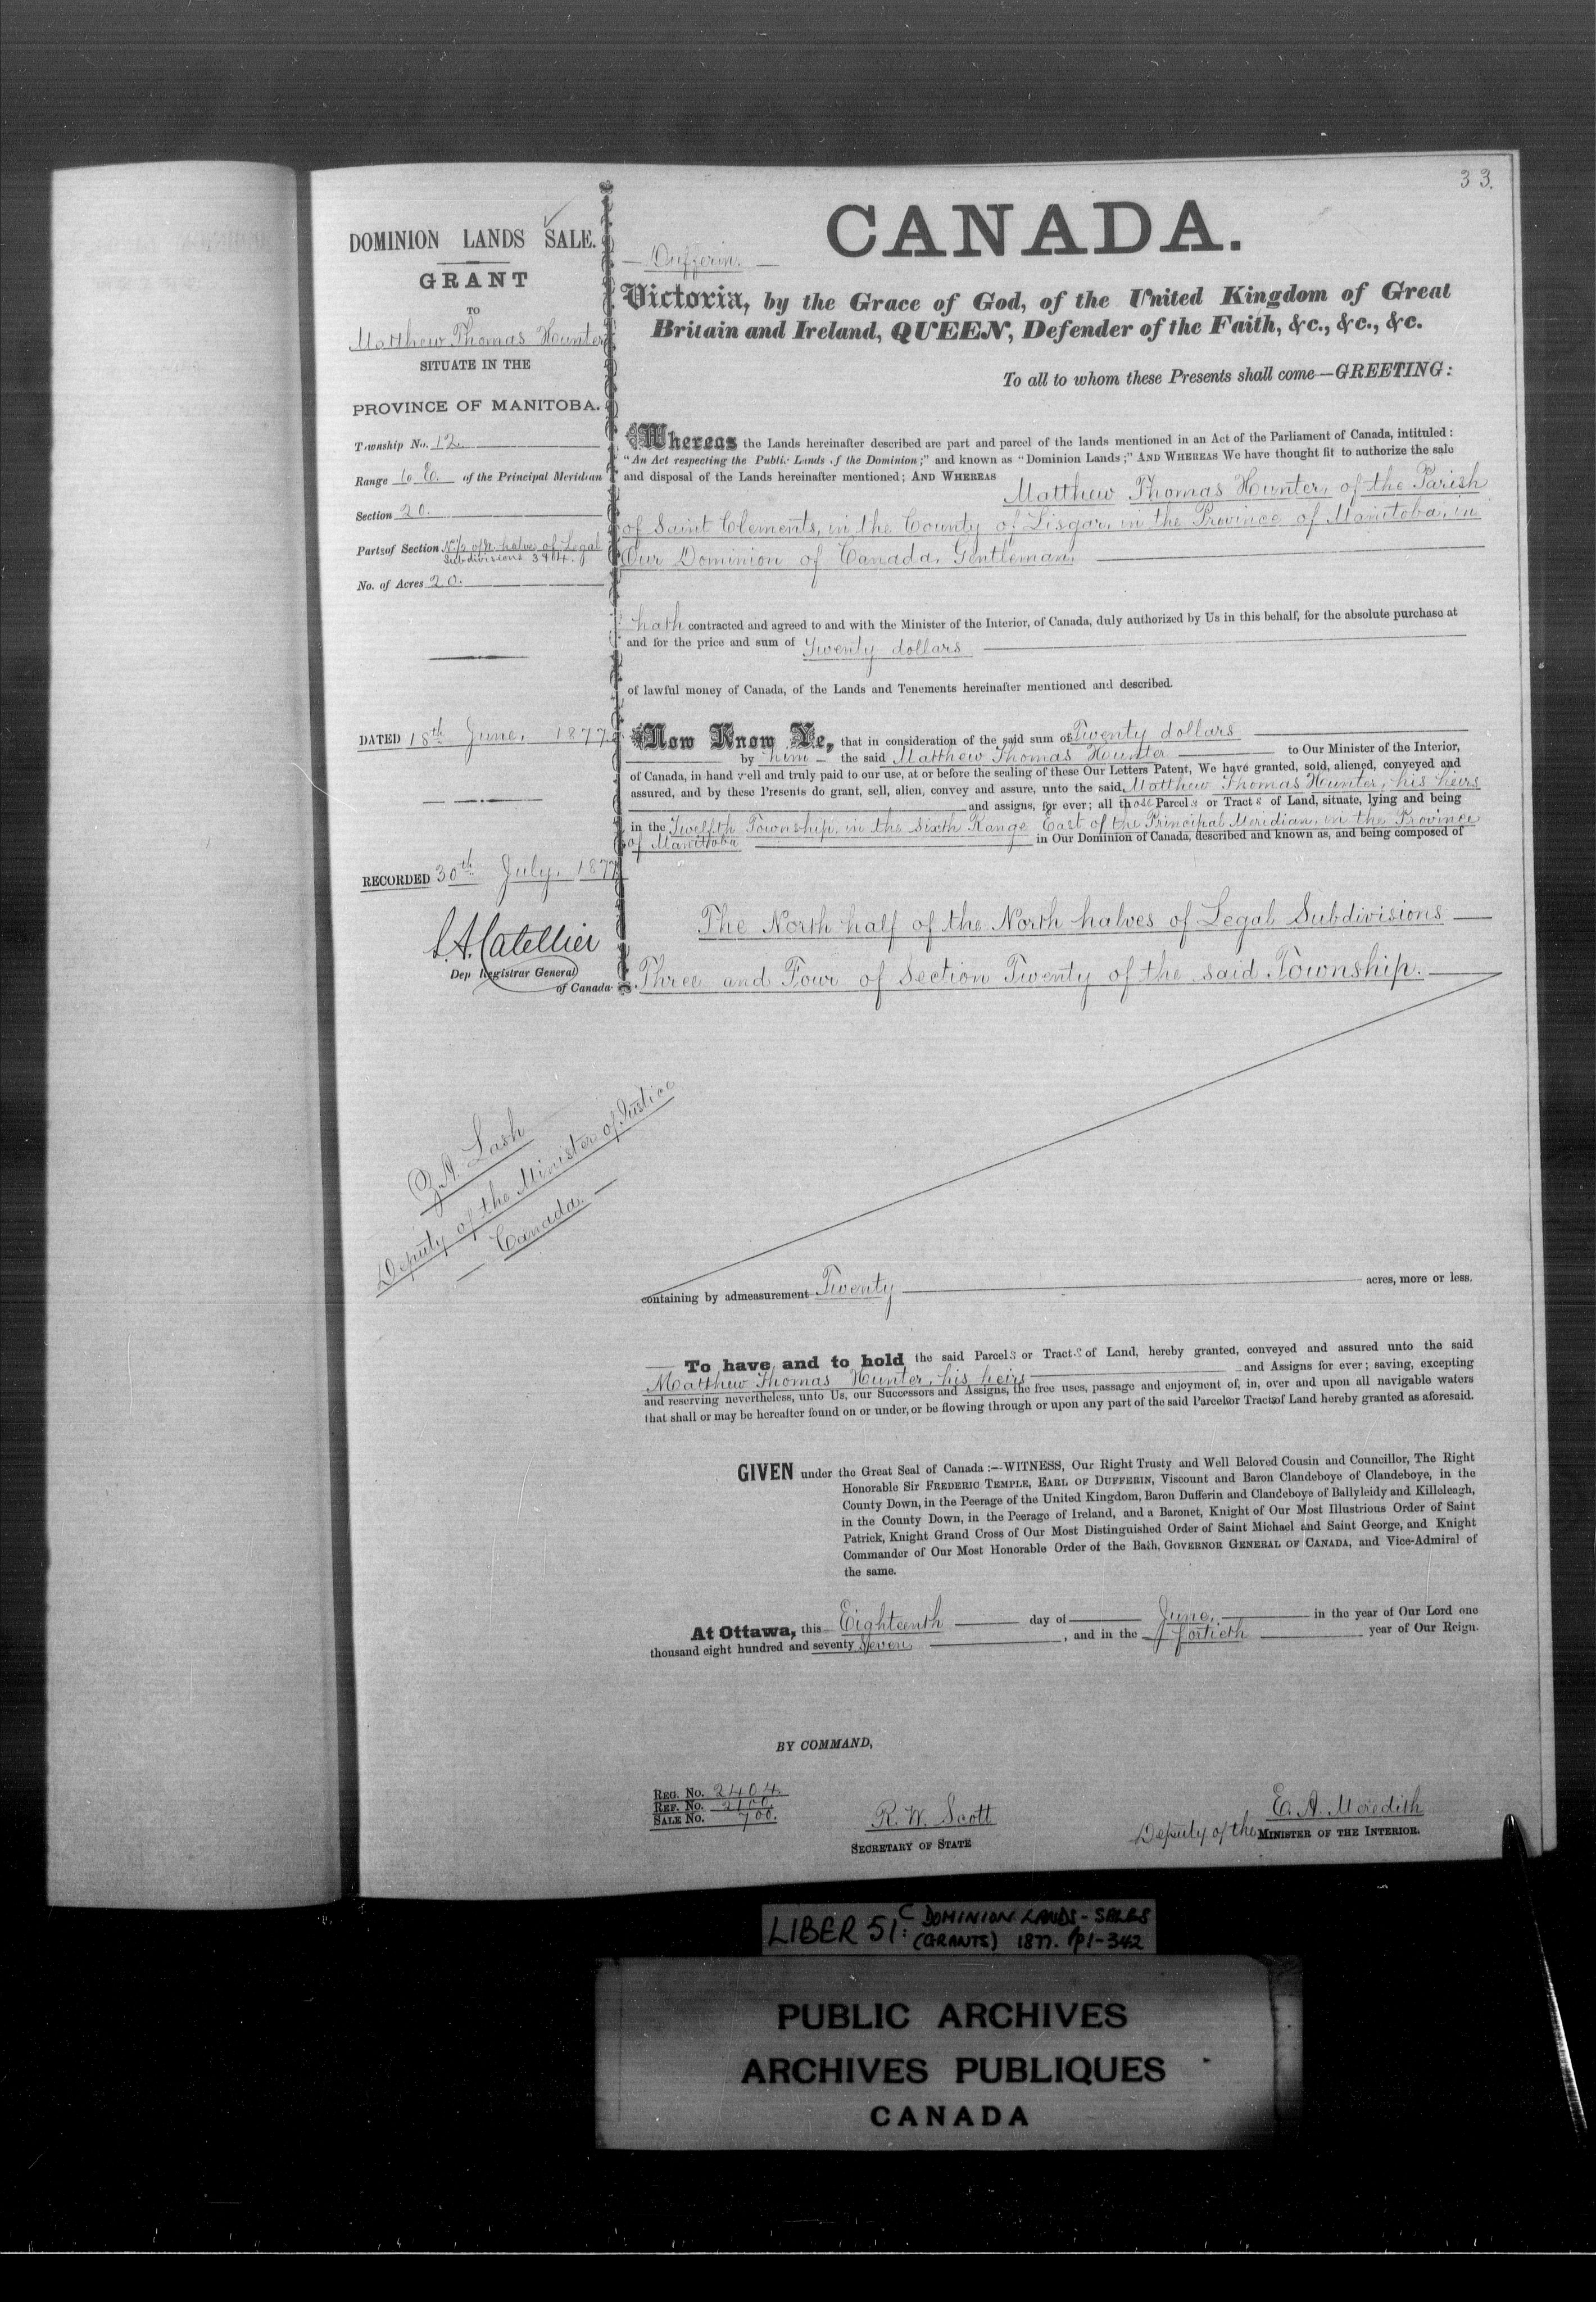 33.
DOMINION LANDS SALE.
GRANT
TO
Matthew Thomas Hunter
SITUATE IN THE
PROVINCE OF MANITOBA.
Township No. 12.
Range 6 E. of the Principal Meridian
Section 20.
Parts of Section N. ½ of N. halves of Legal
Subdivisions 3 & 4.
No. of Acres 20.
DATED 18th June, 1877.
RECORDED 30th July, 1877
L.A. Catellier
Dep Registrar General
of Canada
Z.A. Lash
Deputy of the Minister of Justice
Canada.
CANADA.
Dufferin.
Victoria, by the Grace of God, of the United Kingdom of Great
Britain and Ireland, QUEEN, Defender of the Faith, &c., &c., &c.
To all to whom these Presents shall come—GREETING:
Whereas the Lands hereinafter described are part and parcel of the lands mentioned in an Act of the Parliament of Canada, intituled:
"An Act respecting the Public Lands of the Dominion;" and known as "Dominion Lands;" AND WHEREAS We have thought fit to authorize the sale
and disposal of the Lands hereinafter mentioned; AND WHEREAS Matthew Thomas Hunter, of the Parish
of Saint Clements, in the County of Lisgar, in the Province of Manitoba, in
Our Dominion of Canada, Gentleman,
hath contracted and agreed to and with the Minister of the Interior, of Canada, duly authorized by Us in this behalf, for the absolute purchase at
and for the price and sum of Twenty dollars
of lawful money of Canada, of the Lands and Tenements hereinafter mentioned and described.
Now Know Ye, that in consideration of the said sum of Twenty dollars
by him the said Matthew Thomas Hunter to Our Minister of the Interior,
of Canada, in hand well and truly paid to our use, at or before the sealing of these Our Letters Patent, We have granted, sold, aliened, conveyed and
assured, and by these Presents do grant, sell, alien, convey and assure, unto the said Matthew Thomas Hunter, his heirs
and assigns, for ever; all those Parcels or Tracts of Land, situate, lying and being
in the Twelfth Township, in the Sixth Range East of the Principal Meridian, in the Province
of Manitoba in Our Dominion of Canada, described and known as, and being composed of
The North half of the North halves of Legal Subdivisions
Three and Four of Section Twenty of the said Township.
containing by admeasurement Twenty acres, more or less.
To have and to hold the said Parcels or Tracts of Land, hereby granted, conveyed and assured unto the said
Matthew Thomas Hunter, his heirs and Assigns for ever; saving, excepting
and reserving nevertheless, unto Us, our Successors and Assigns, the free uses, passage and enjoyment of, in, over and upon all navigable waters
that shall or may be hereafter found on or under, or be flowing through or upon any part of the said Parcels or Tracts of Land hereby granted as aforesaid.
GIVEN under the Great Seal of Canada:—WITNESS, Our Right Trusty and Well Beloved Cousin and Councillor, The Right
Honorable Sir FREDERIC TEMPLE, EARL OF DUFFERIN, Viscount and Baron Clandeboye of Clandeboye, in the
County Down, in the Peerage of the United Kingdom, Baron Dufferin and Clandeboye of Ballyleidy and Killeleagh,
in the County Down, in the Peerage of Ireland, and a Baronet, Knight of Our Most Illustrious Order of Saint
Patrick, Knight Grand Cross of Our Most Distinguished Order of Saint Michael and Saint George, and Knight
Commander of Our Most Honorable Order of the Bath, GOVERNOR GENERAL OF CANADA, and Vice-Admiral of
the same.
At Ottawa, this Eighteenth day of June, in the year of Our Lord one
thousand eight hundred and seventy seven, and in the fortieth year of Our Reign.
BY COMMAND,
REG. No. 2404.
REF. No. 2100.
SALE No. 700.
R. W. Scott
SECRETARY OF STATE
E. A. Meredith
Deputy of the MINISTER OF THE INTERIOR.
LIBER 51C: DOMINION LANDS-SALES
(GRANTS) 1877. p1-342
PUBLIC ARCHIVES
ARCHIVES PUBLIQUES
CANADA